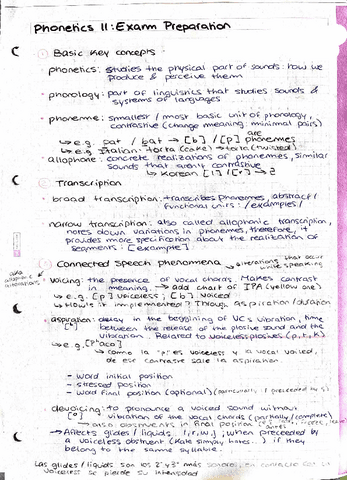 Phonetics II: Exam Preparation
① Basic Key concepts
• phonetics: studies the physical part of sounds: how we
produce & perceive them
• phonology: part of linguistics that studies sounds &
systems of languages
• phoneme: smallest / most basic unit of phonology,
contrastive (change meaning: minimal pairs)
↳ e.g. pat / bat → [b] / [p] are phonemes
↳ e.g. Italian: torta (cake) → torta (twisted)
• allophone: concrete realizations of phonemes, similar
sounds that aren't contrastive
↳ Korean [l] / [r] →
② Transcription
• broad transcription: transcribes phonemes, abstract /
functional units: /examples/
• narrow transcription: also called allophonic transcription,
notes down variations in phonemes, therefore, it
provides more specification about the realization of
segments: [example]
③ Connected Speech phenomena
↳ alterations that occur
while speaking
• voicing: the presence of vocal chords. Makes contrast
in meaning. → add chart of IPA (yellow one)
↳ e.g. [p] voiceless; [b] voiced
↳ how is it implemented? Through aspiration / duration
• aspiration: delay in the beginning of VCs vibration, time
[ʰ] between the release of the plosive sound and the
vibration. Related to voiceless plosives (p, t, k)
↳ e.g. [pʰ
↳ como la "p" es voiceless y a vocal voiced,
de ese contraste sale la aspiración
- word initial position
- stressed position
- word final position (optional)
• devoicing: to pronounce a voiced sound without
vibration of the vocal chords (partially / complete)
↳ also, obstruents in final position
→ Affects glides / liquids l, r, w, j; when preceded by
a voiceless obstruent (Kate simply hates...) if they
belong to the same syllable.
Las glides / liquids son los 2ºy3º más sonoros, en contacto con la
voiceless se pierde su intensidad